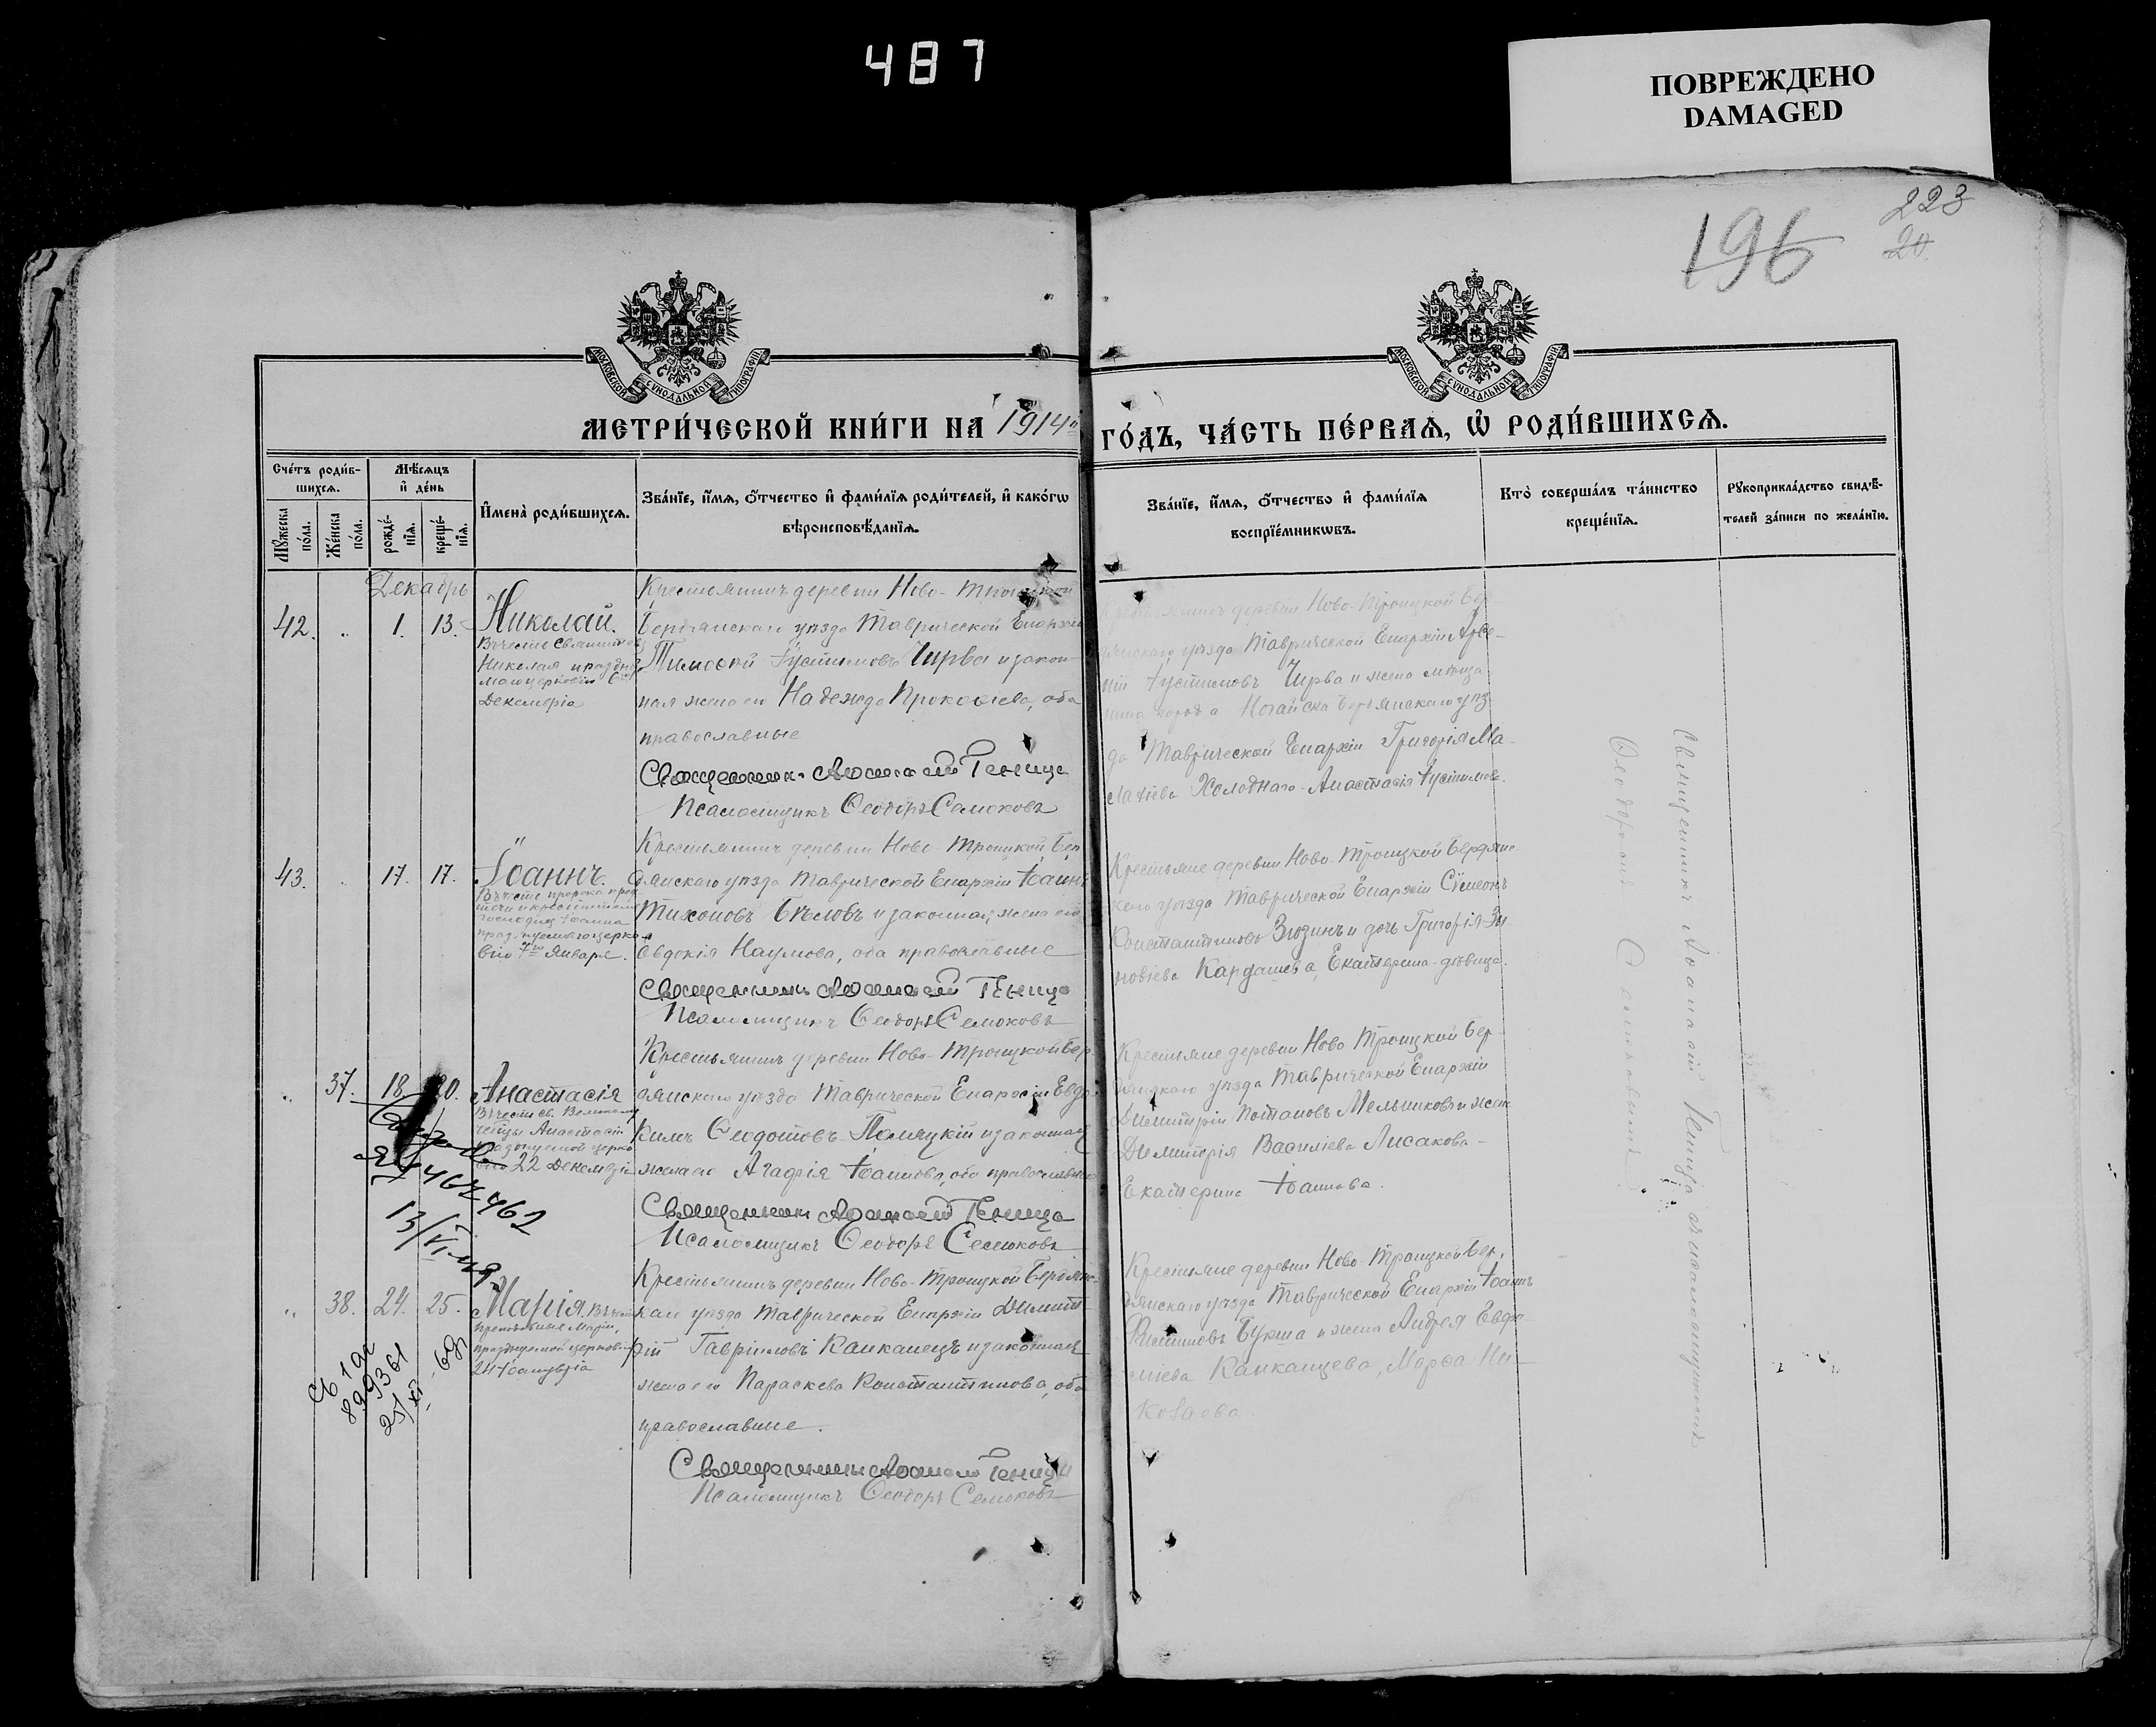 487
ПОВРЕЖДЕНО
DAMAGED
196
223
20.
МОСКОВСКОЙ СѴНОДАЛЬНОЙ ТИПОГРАФІИ
МОСКОВСКОЙ СѴНОДАЛЬНОЙ ТИПОГРАФІИ
МЕТРИ́ЧЕСКОЙ КНИ́ГИ НА 1914й ГО́ДЪ, ЧА́СТЬ ПЕ́РВАѦ, Ѡ҆ РОДИ́ВШИХСѦ.
Сче́тъ роди́в-
шихсѧ.
Мꙋ́жеска по́ла.
Же́нска по́ла.
Мѣ́сѧцъ
и҆ де́нь
рожде́-
нїѧ.
креще́-
нїѧ.
И҆мена̀ роди́вшихсѧ.
Зва́нїе, и҆́мѧ, ѻ҆́тчество и҆ фами́лїѧ роди́телей, и҆ како́гѡ
вѣроисповѣ́данїѧ.
Зва́нїе, и҆́мѧ, ѻ҆́тчество и҆ фами́лїѧ
воспрїе́мникѡвъ.
Кто̀ соверша́лъ та́инство
креще́нїѧ.
Рꙋкоприкла́дство свидѣ́-
телей за́писи по жела́нїю.
Декабрь
42. " 1. 13. Николай.
Николая
6го
Декемврія
Крестьянинъ деревни Ново-Троицкой
Бердянскаго уѣзда Таврической Епархіи
Тимоѳей Іустиновъ Чирва и закон-
ная жена его Надежда Прокофіева, оба
православные
Священникъ Аѳанасій Геница
Псаломщикъ Ѳеодоръ Семоковъ
деревни Ново-Троицкой Бер-
уѣзда Таврической Епархіи Арсе-
ній Іустиновъ Чирва и жена мѣща-
нина города Ногайска Бердянскаго уѣз-
да Таврической Епархіи Григорія Ма-
Холоднаго-Анастасія Іустинова.
"
43. " 17. 17. Іоаннъ.
Въ честь пророка пред-
течи и крестителя
Господня Іоанна
празднуемаго церко-
вію 7го Января.
Крестьянинъ деревни Ново-Троицкой Бер-
дянскаго уѣзда Таврической Епархіи Іоаннъ
Тихоновъ Бѣловъ и законная жена его
Евдокія Наумова, оба православные
Священникъ Аѳанасій Геница
Псаломщикъ Ѳеодоръ Семоковъ
Крестьяне деревни Ново-Троицкой Бердянс-
каго уѣзда Таврической Епархіи Сѵмеонъ
Константиновъ Зюзинъ и дочь Григорія Зи-
новіева Кардашева, Екатерина-дѣвица.
" 37. 18. 20. Анастасія
Въ честь св. Великому-
ченицы Анастасіи
празднуемой церко-
вію 22 Декемврія
Крестьянинъ деревни Ново-Троицкой Бер-
дянскаго уѣзда Таврической Епархіи Евдо-
кимъ Ѳеодотовъ и законная
жена его Агафія Іоаннова, оба православные
Священникъ Аѳанасій Геница
Псаломщикъ Ѳеодоръ Семоковъ
Крестьяне деревни Ново-Троицкой Бер-
дянскаго уѣзда Таврической Епархіи
Димитрій Потаповъ Мельниковъ и жена
Димитрія Василіева Лисакова-
Екатерина Іоаннова.
467462
" 38. 24. 25. Марія
Преподобныя Маріи,
празднуемой церковію
Крестьянинъ деревни Ново-Троицкой Бердянс-
каго уѣзда Таврической Епархіи Димит-
рій Гавріиловъ Канканецъ и законная
жена его Параскева Константинова, оба
православные.
Священникъ Аѳанасій Геница
Псаломщикъ Ѳеодоръ Семоковъ
Крестьяне деревни Ново-Троицкой Бер-
дянскаго уѣзда Таврической Епархіи Іоаннъ
Букша и жена Андрея Евфи-
міева Канканцева, Марѳа Ни-
899361
Священникъ Аѳанасій Геница съ псаломщикомъ
Ѳеодоромъ Семоковымъ.